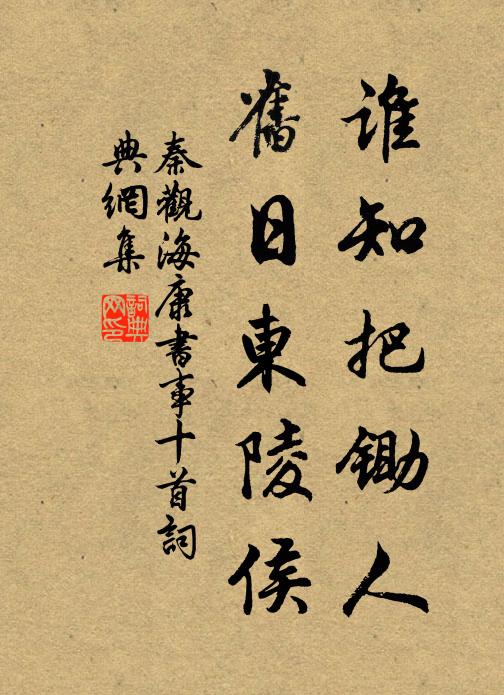 誰知把鋤人
舊日東陵侯
秦觀海康書事十首詞
典網集
詞典網印